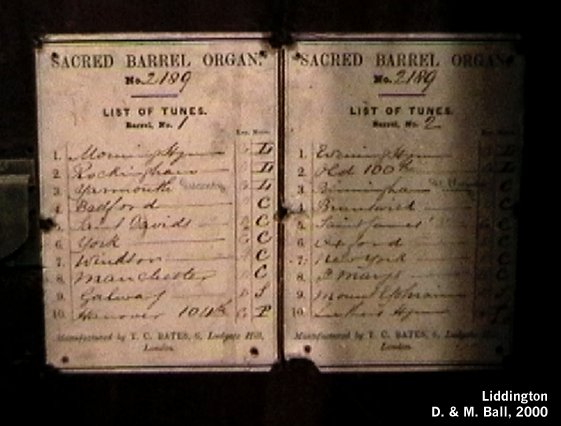 SACRED BARREL ORGAN.
No. 2189
LIST OF TUNES.
Barrel, No. 1
Key. Metre.
1. Morning Hymn L
2. Rockingham L
3. Yarmouth L
4. Bedford C
5. Saint Davids C
6. York C
7. Windsor C
8. Manchester C
9. Galway S
10. Hanover 104th P
Manufactured by T. C. BATES, 6, Ludgate Hill,
London.
SACRED BARREL ORGAN.
No. 2189
LIST OF TUNES.
Barrel, No. 2
1. Evening Hymn L
2. Old 100th L
3. Birmingham C
4. Brunswick C
5. Saint James' C
6. Oxford C
7. New York C
8. St Marys C
9. Mount Ephraim S
10. Luthers Hymn
Manufactured by T. C. BATES, 6, Ludgate Hill,
London.
Liddington
D. & M. Ball, 2000